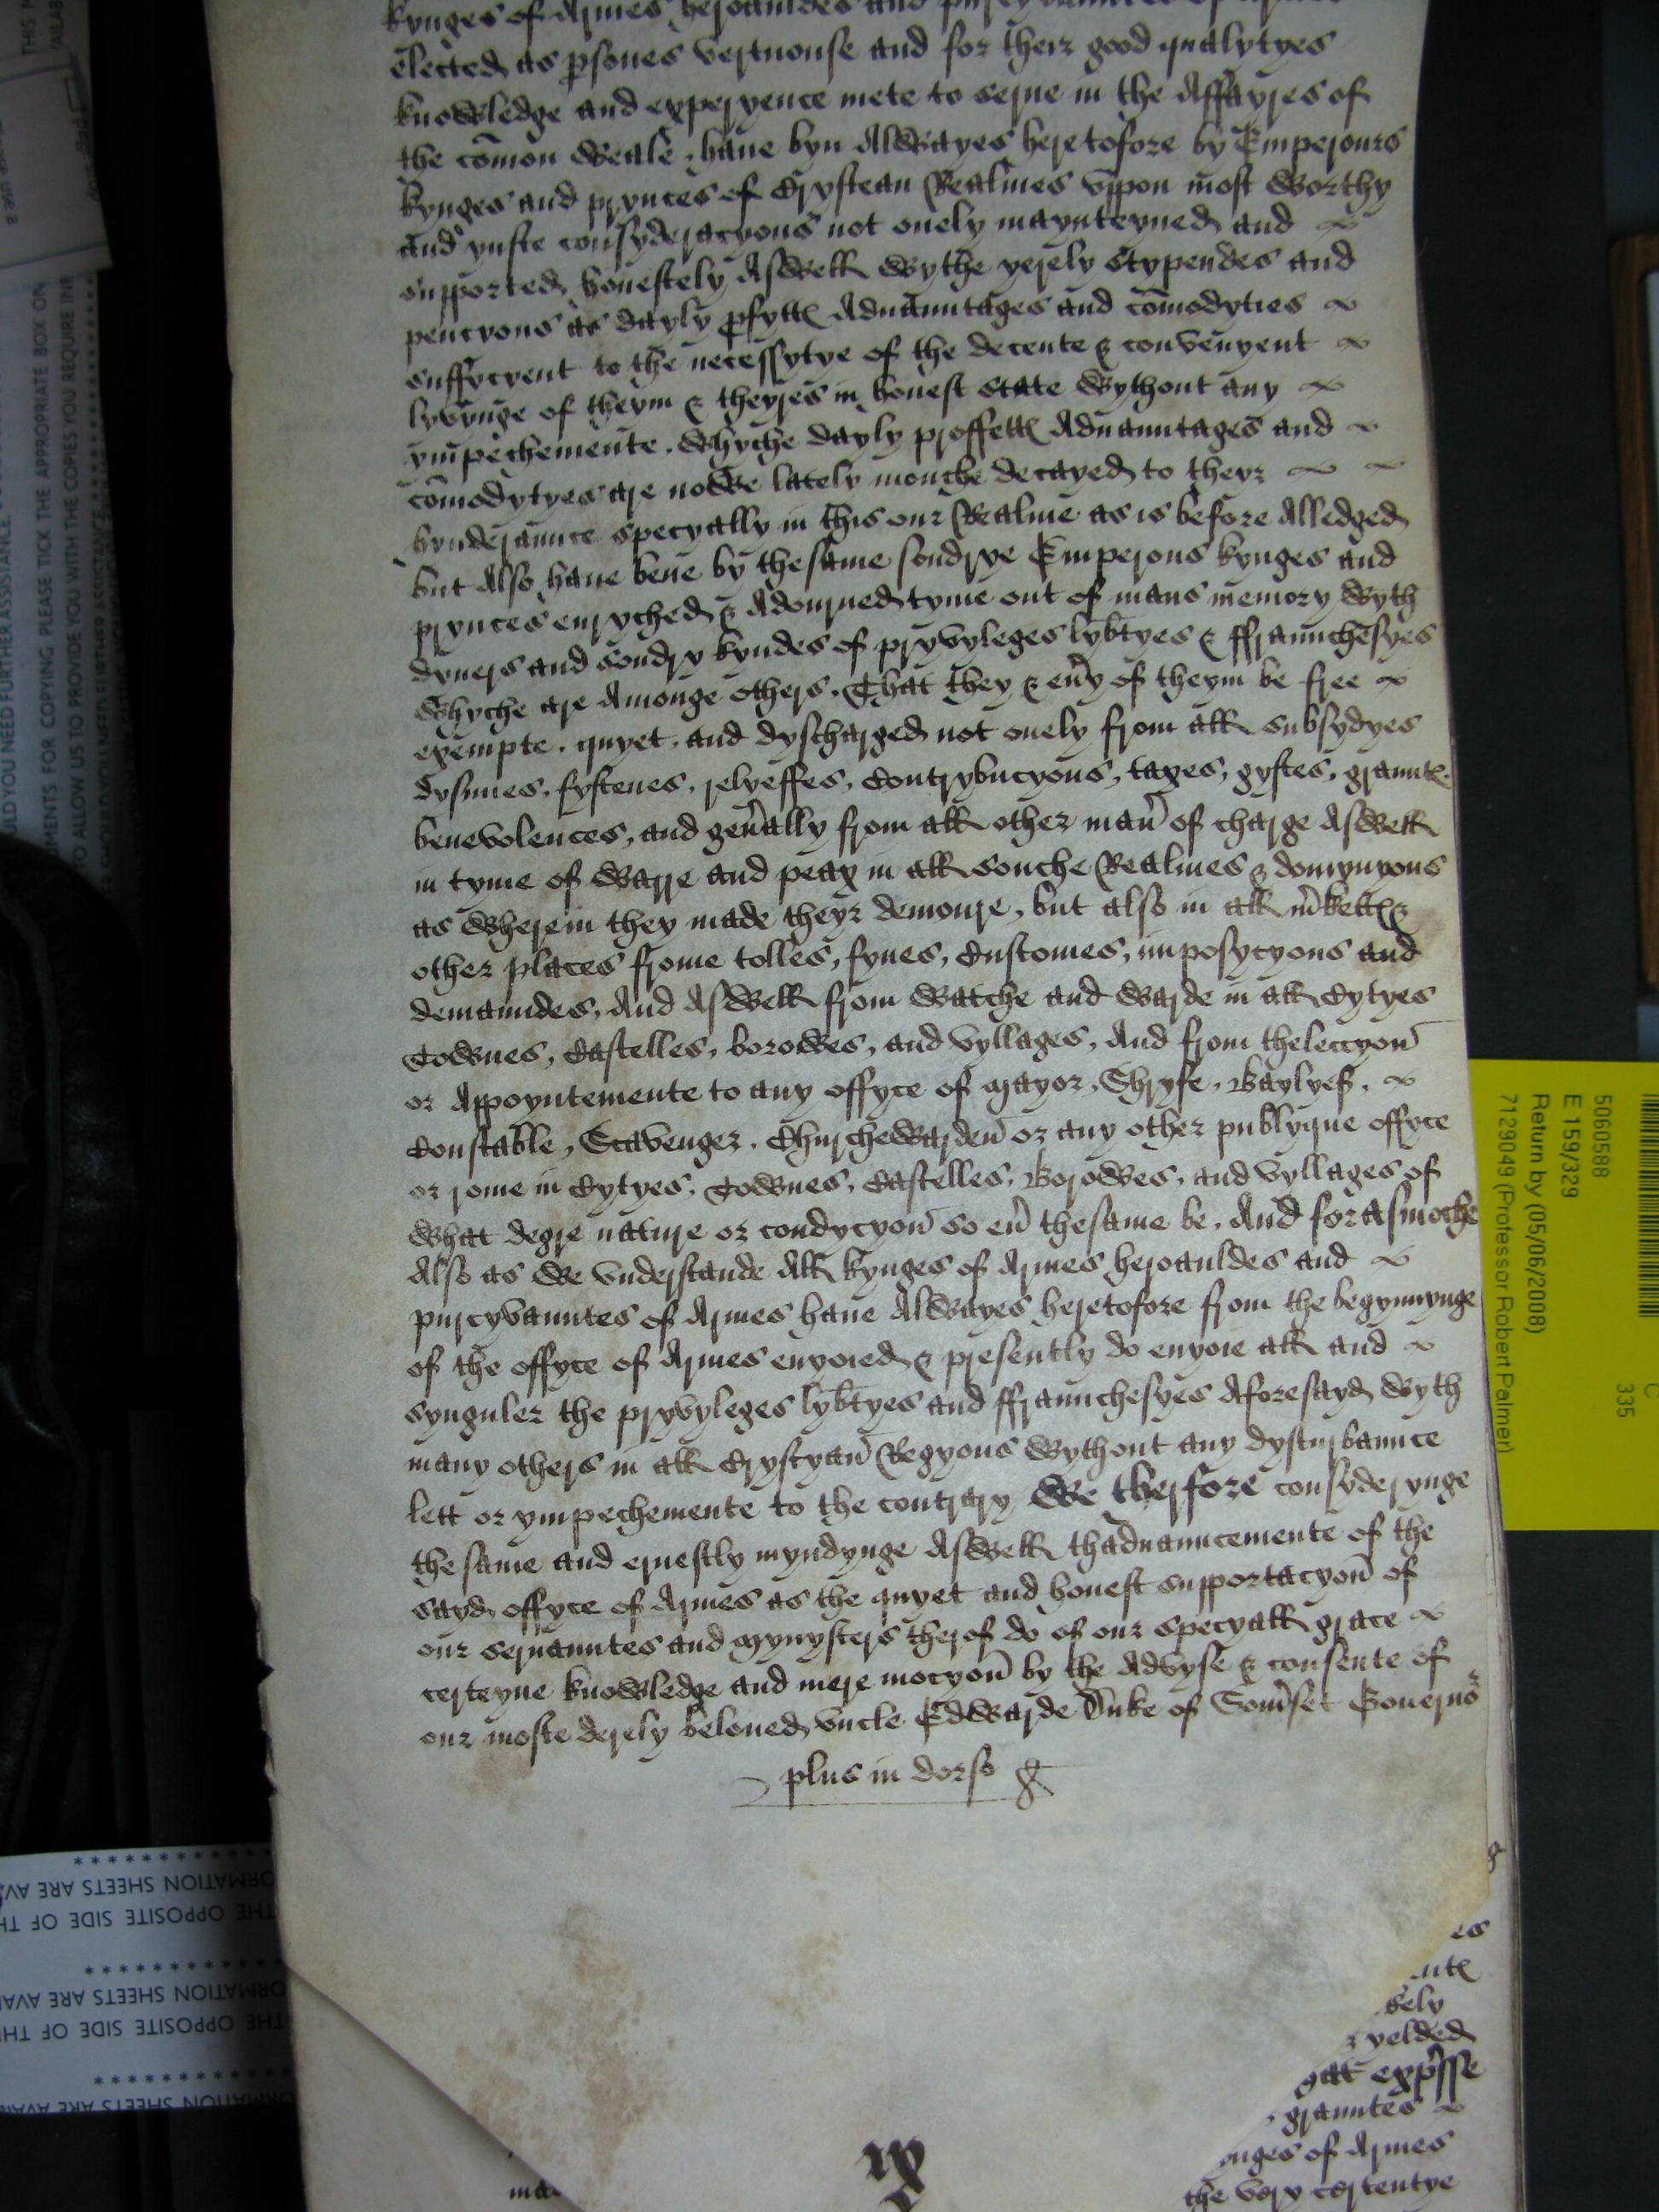 kynges of Armes heroauldes and
elected as psones vertuouse and for theer good qualytyes
knowledge and experyence mete to serue in the Affayres of
the comon weale, haue byn Alwayes heretofore by Emperours
kynges and prynces of Crystean Realmes vppon most worthy
and yuste consyderacyons not onely maynteyned and
supported honestely Aswell wythe yerely stypendes and
pencyons as dayly pfytte Aduauntages and comodyties
suffycyent to the necessytye of the decente & convenyent
lyvynge of theym & theyres in honest state wythout any
ympechemente. whyche dayly proffette Aduauntages and
comodytyes are nowe lately mouche decayed to theyr
hynderaunce specyally in this our Realme as is before Alledged
but Also haue bene by thesame sondrye Emperous kynges and
prynces enryched & Adourned tyme out of mans memory wyth
dyuers and sondry kyndes of pryvyleges lybtyes & ffraunchesyes
whyche are Amonge others. That they & eny of theym be free
exempte. quyet. and dyscharged not onely from all subsydyes
dysmes. fyftenes. relyeffes, Contrybucyons, taxes, gyftes, graunte
benevolences, and genally from all other man of charge Aswell
in tyme of warre and peax in all souche Realmes & domynyons
as wherein they made theyr demoure, but also in all mkette &
other places frome tolles, fynes, Customes, imposycyons and
demaundes, And Aswell from watche and warde in all Cytyes
Townes, Castelles, borowes, and vyllages, And from theleccyon
or Appoyntemente to any offyce of Mayor, Shryfe, Baylyef,
Constable, Scavenger, Churchewarden or any other publyque offyce
or rome in Cytyes, Townes, Castelles, Borowes, and vyllages of
what degre nature or condycyon so eu thesame be. And forasmoche
Also as we vnderstande All kynges of Armes heroauldes and
purcyvauntes of Armes haue Alwayes heretofore from the begynnynge
of the offyce of Armes enyoied & presently do enyoie all and
synguler the pryvyleges lybtyes and ffraunchesyes Aforesayd wyth
many others in all Crystyan Regyons wythout any dysturbaunce
lett or ympechemente to the contrary We therfore consyderynge
the same and ernestly myndynge Aswell thaduauncemente of the
sayd offyce of Armes as the quyet and honest supportacyon of
our seruauntes and mynysters therof do of our specyall grace
certeyne knowledge and mere mocyon by the Advyse & consente of
our moste derely beloued vncle Edwarde Duke of Somset Gouerno
plus in dorso
es
sely
yelded
expsse
grauntes
ynges of Armes
the very certentye
5060588
E 159/329
Return by (05/06/2008)
7129049 (Professor Robert Palmer)
C
335
ULD YOU NEED FURTHER ASSISTANCE.
MENTS FOR COPYING PLEASE TICK THE APPROPRIATE BOX ON
TO ALLOW US TO PROVIDE YOU WITH THE COPIES YOU REQUIRE IN
THE OPPOSITE SIDE OF TH
ORMATION SHEETS ARE AVA
THE OPPOSITE SIDE OF THI
ORMATION SHEETS ARE AVA